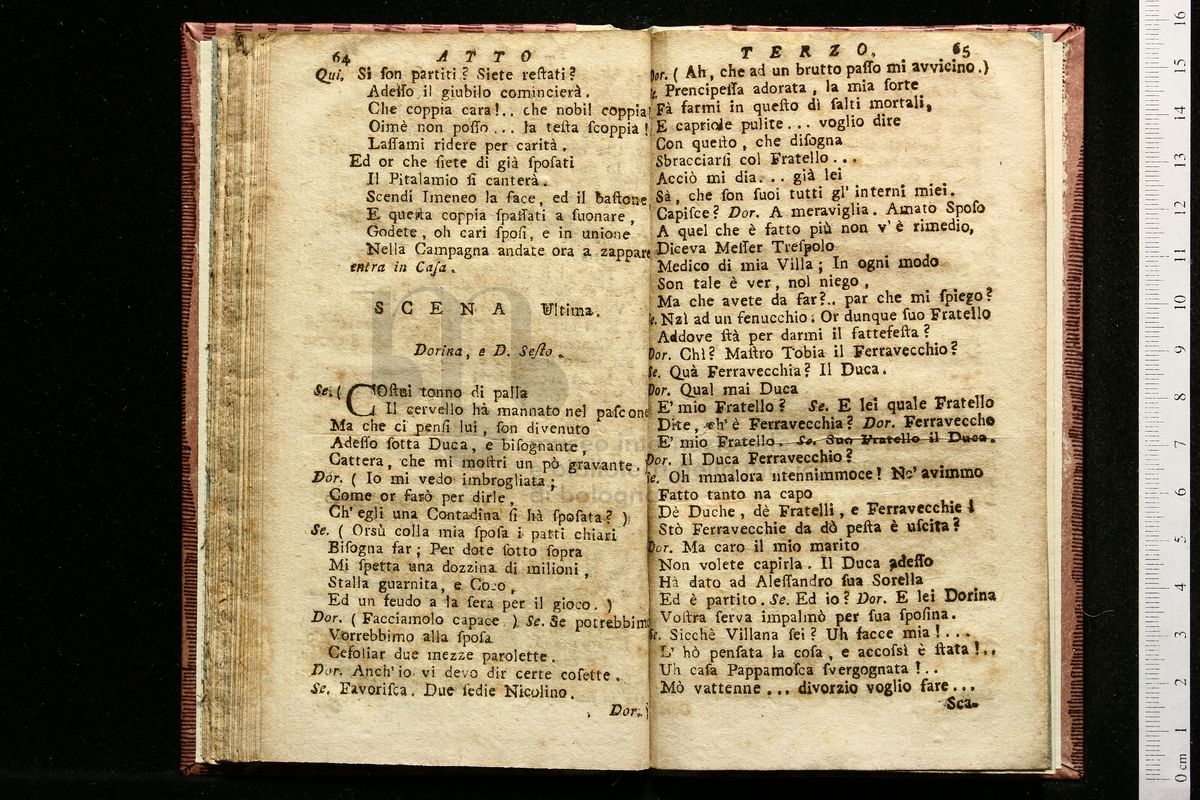 64 ATTO
Qui. Si ſon partiti? Siete reſtati?
Adeſſo il giubilo comincierà.
Che coppia cara!.. che nobil coppia!
Oimè non poſſo... la teſta ſcoppia!
Laſſami ridere per carità.
Ed or che ſiete di già ſpoſati
Il Pitalamio ſi canterà.
Scendi Imeneo la face, ed il baſtone
E queſta coppia ſpaſſati a ſuonare,
Godete, oh cari ſpoſi, e in unione
Nella Campagna andate ora a zappare
entra in Caſa.
SCENA Ultima.
Dorina, e D. Seſto.
Se. ( COſtui tonno di palla
Il cervello hà mannato nel paſcone
Ma che ci penſi lui, ſon divenuto
Adeſſo ſotta Duca, e biſognante,
Cattera, che mi moſtri un pò gravante.
Dor. ( Io mi vedo imbrogliata;
Come or farò per dirle,
Ch' egli una Contadina ſi hà ſpoſata? )
Se. ( Orsù colla mia ſpoſa i patti chiari
Biſogna far; Per dote ſotto ſopra
Mi ſpetta una dozzina di milioni,
Stalla guarnita, e Coco,
Ed un feudo a la ſera per il gioco. )
Dor. ( Facciamolo capace. ) Se. Se potrebbimo
Vorrebbimo alla ſpoſa
Ceſoliar due mezze parolette.
Dor. Anch' io vi devo dir certe coſette.
Se. Favoriſca. Due ſedie Nicolino.
Dor.
TERZO. 65
Dor. ( Ah, che ad un brutto paſſo mi avvicino.)
Se. Prencipeſſa adorata, la mia ſorte
Fà farmi in queſto dì ſalti mortali,
E capriole pulite... voglio dire
Con queſto, che diſogna
Sbracciarſi col Fratello...
Acciò mi dia... già lei
Sà, che ſon ſuoi tutti gl' interni miei.
Capiſce? Dor. A meraviglia. Amato Spoſo
A quel che è fatto più non v' è rimedio,
Diceva Meſſer Treſpolo
Medico di mia Villa; In ogni modo
Son tale è ver, nol niego,
Ma che avete da far?.. par che mi ſpiego?
Se. Nzì ad un fenucchio. Or dunque ſuo Fratello
Addove ſtà per darmi il fatteſeſta?
Dor. Chì? Maſtro Tobia il Ferravecchio?
Se. Quà Ferravecchia? Il Duca.
Dor. Qual mai Duca
E' mio Fratello? Se. E lei quale Fratello
Dite, ch' è Ferravecchia? Dor. Ferravecchio
E' mio Fratello. Se. Suo Fratello il Duca.
Dor. Il Duca Ferravecchio?
Se. Oh mmalora ntennimmoce! Nc' avimmo
Fatto tanto na capo
Dè Duche, dè Fratelli, e Ferravecchie!
Stò Ferravecchie da dò peſta è uſcita?
Dor. Ma caro il mio marito
Non volete capirla. Il Duca adeſſo
Hà dato ad Aleſſandro ſua Sorella
Ed è partito. Se. Ed io? Dor. E lei Dorina
Voſtra ſerva impalmò per ſua ſpoſina.
Se. Sicchè Villana ſei? Uh facce mia!...
L' hò penſata la coſa, e accoſsì è ſtata!..
Uh caſa Pappamoſca ſvergognata!..
Mò vattenne... divorzio voglio fare...
Sca-